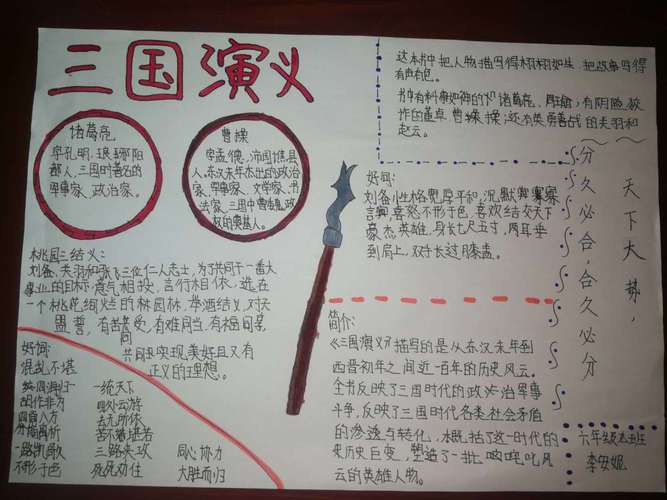 三国演义
诸葛亮
字孔明,琅琊阳
都人,三国时著名的
军事家、政治家。
曹操
字孟德,沛国谯县
人,东汉末年杰出的政治
家、军事家、文学家、书
法家,三国中曹魏政
权的奠基人。
这本书中把人物描写得栩栩如生,把故事写得
有声有色。
书中有料事如神的诸葛亮、周瑜;有阴险狡
诈的董卓、曹操;还有英勇善战的关羽和
赵云。
天下大势,
分久必合,合久必分
好词:
刘备小生格宽厚平和,沉默寡
言,喜怒不形于色,喜欢结交天下
豪杰英雄,身长七尺五寸,两耳垂
到肩上,双手长过膝盖。
桃园三结义:
刘备、关羽和张飞三位仁人志士,为了共同干一番大
事业的目标,意气相投,言行相依,选在
一个桃花绚烂的林园林,举酒结义,对天
盟誓,有苦同受,有难同当,有福同享,
共同实现美好且又有
正义的理想。
好词:
混乱不堪
一统天下
四处云游
一路凯歌
三路夹攻
同心协力
不形于色
大胜而归
简介:
《三国演义》描写的是从东汉末年到
西晋初年之间近一百年的历史风云。
全书反映了三国时代的政治军事
斗争,反映了三国时代各类社会矛盾
的渗透与转化,概括了这一时代的
历史巨变,塑造了一批叱咤风
云的英雄人物。
六年级五班
李安妮